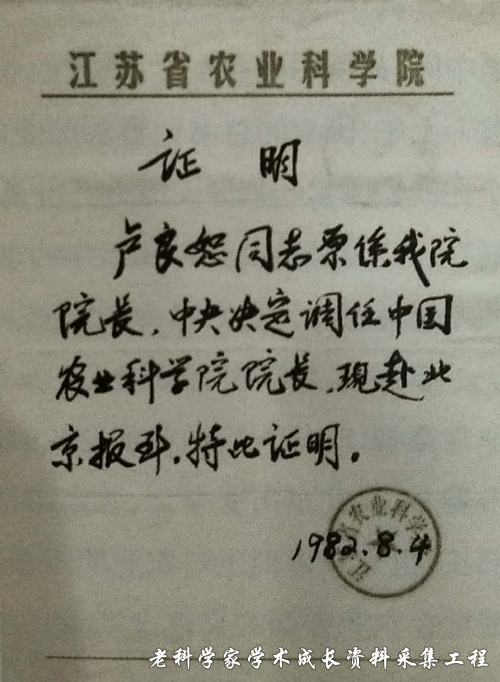 江苏省农业科学院
证 明
卢良恕同志原係我院
院长，中央决定调任中国
农业科学院院长，现赴北
京报到，特此证明。
1982.8.4
江苏省农业科学院
老科学家学术成长资料采集工程